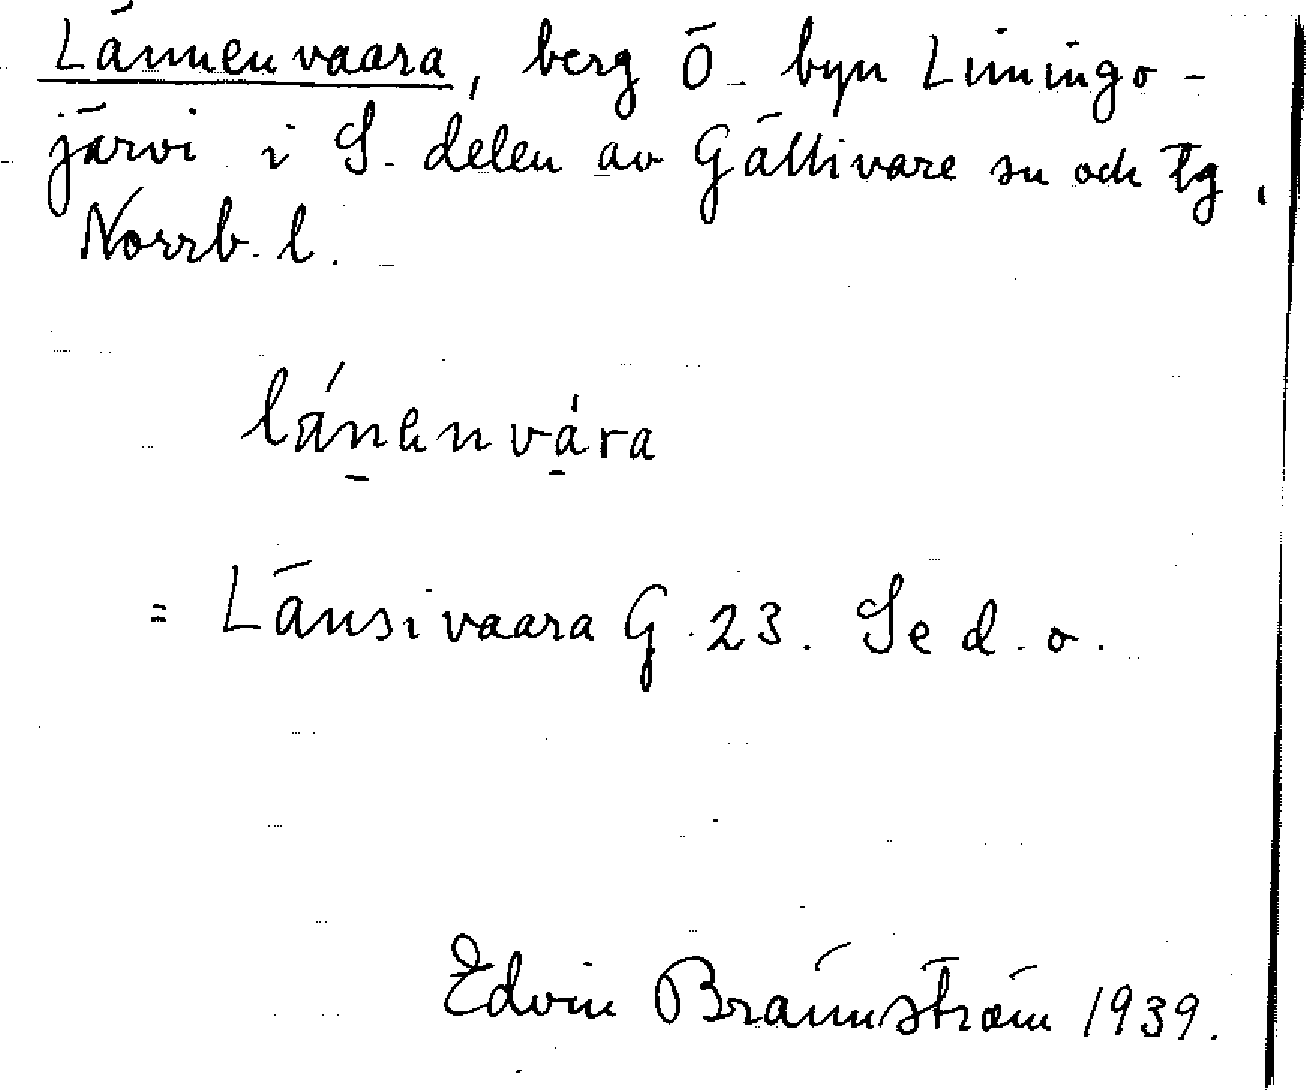 Lännenvaara, berg Ö. byn Liningo-
järvi i S. delen av Gällivare sn och tg,
Norrb. l.
länenvára
= Länsivaara G. 23. Se d. o.
Edvin Brännström 1939.